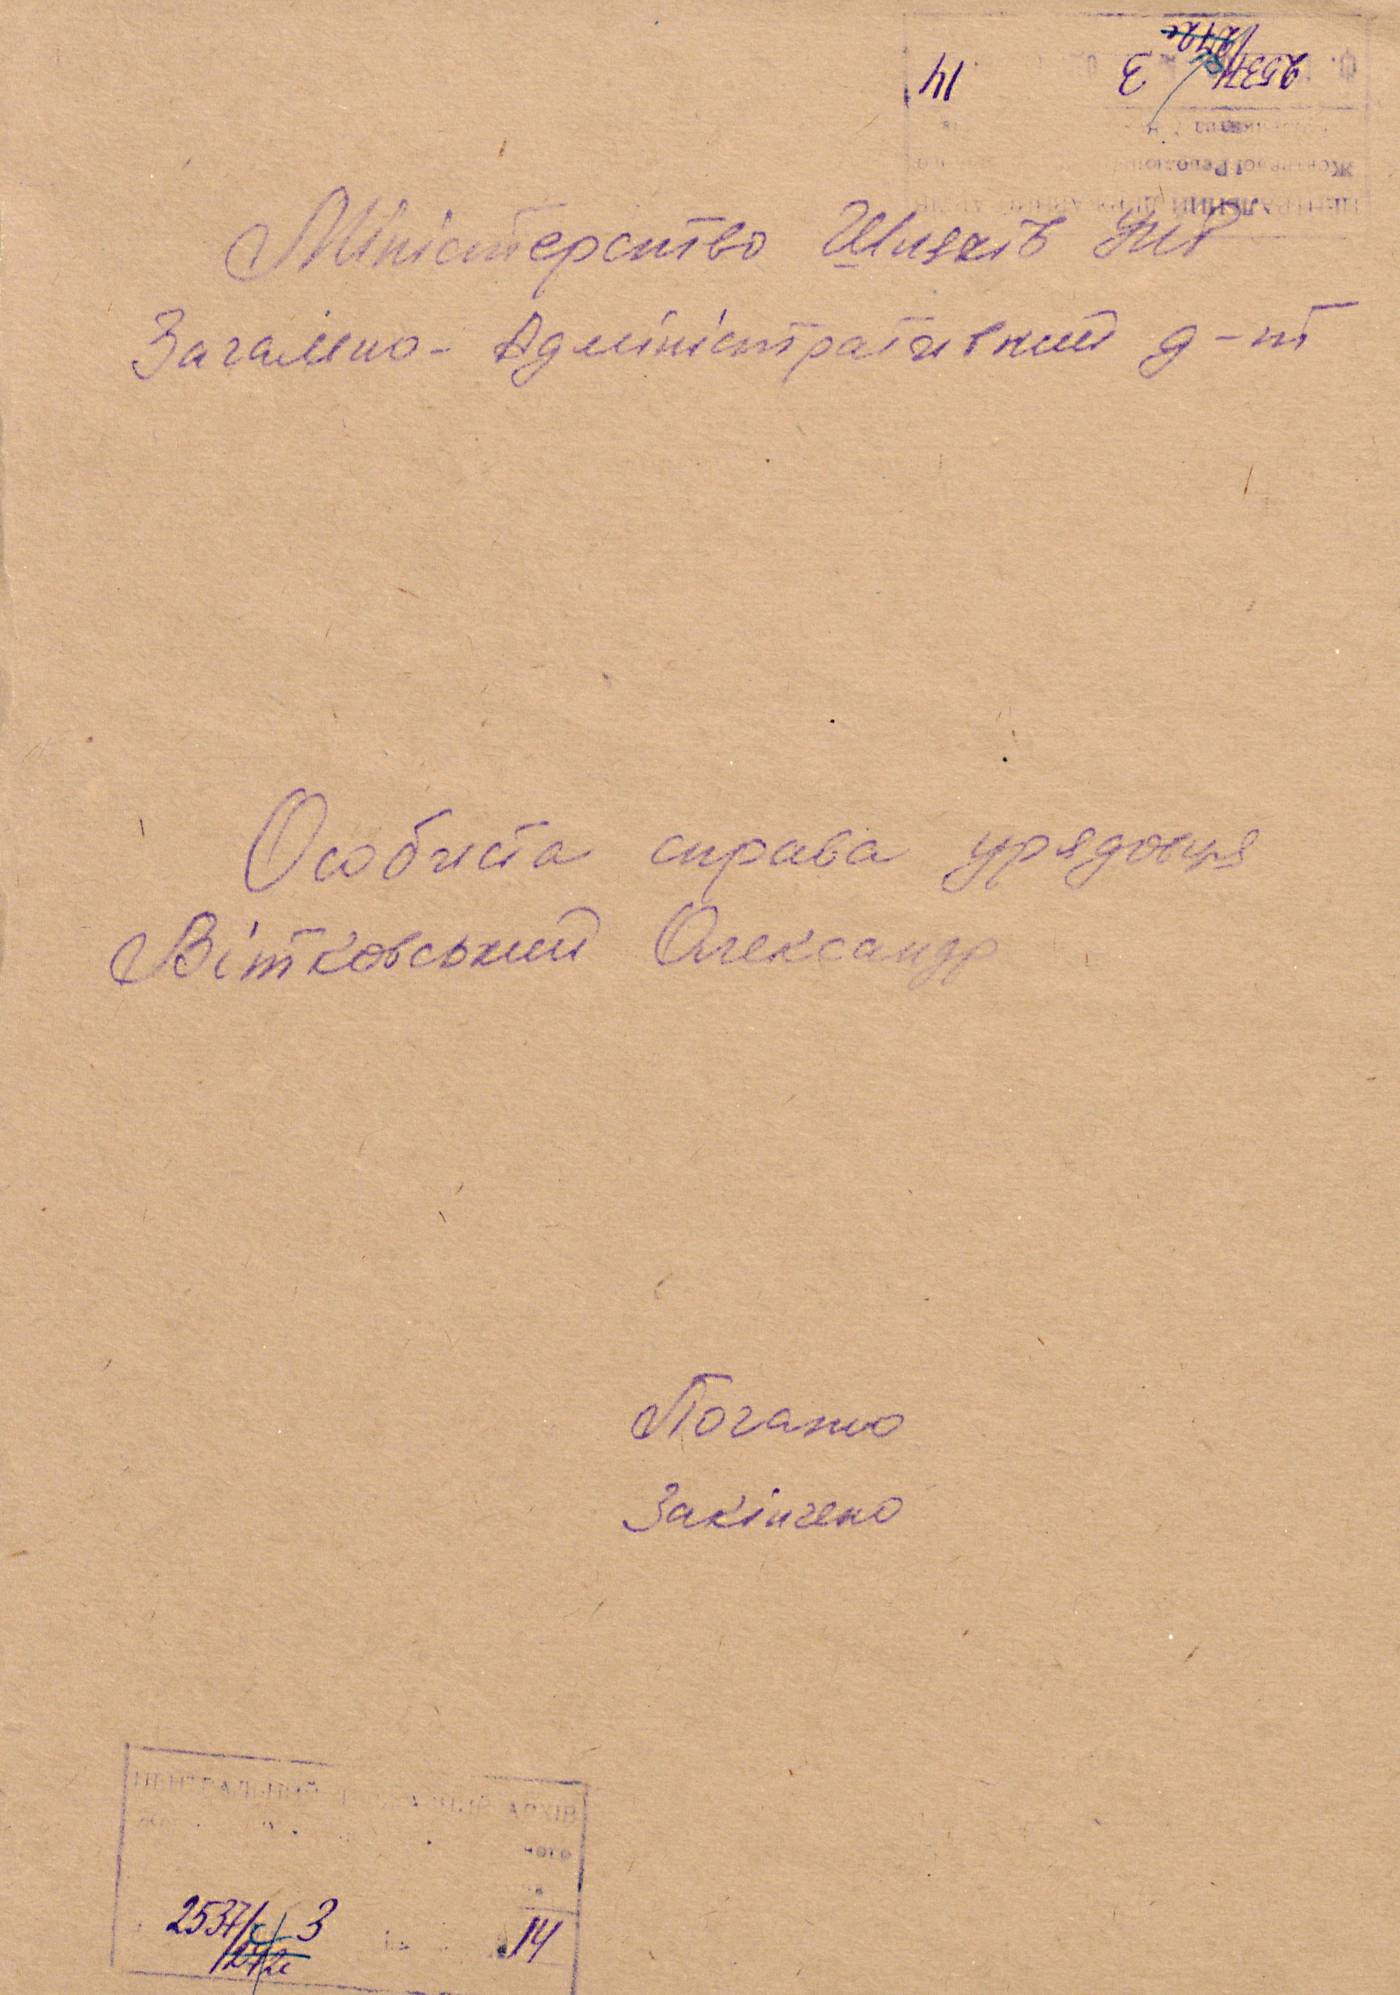 14 3 2537
Жовтневої Революції
ЦЕНТРАЛЬНИЙ ДЕРЖАВНИЙ АРХІВ
Міністерство Шляхів УНР
Загально-Адміністративний д-нт
Особиста справа урядовця
Вітковський Олександр
Почато
Закінчено
ЦЕНТРАЛЬНИЙ ДЕРЖАВНИЙ АРХІВ
2537 3 14